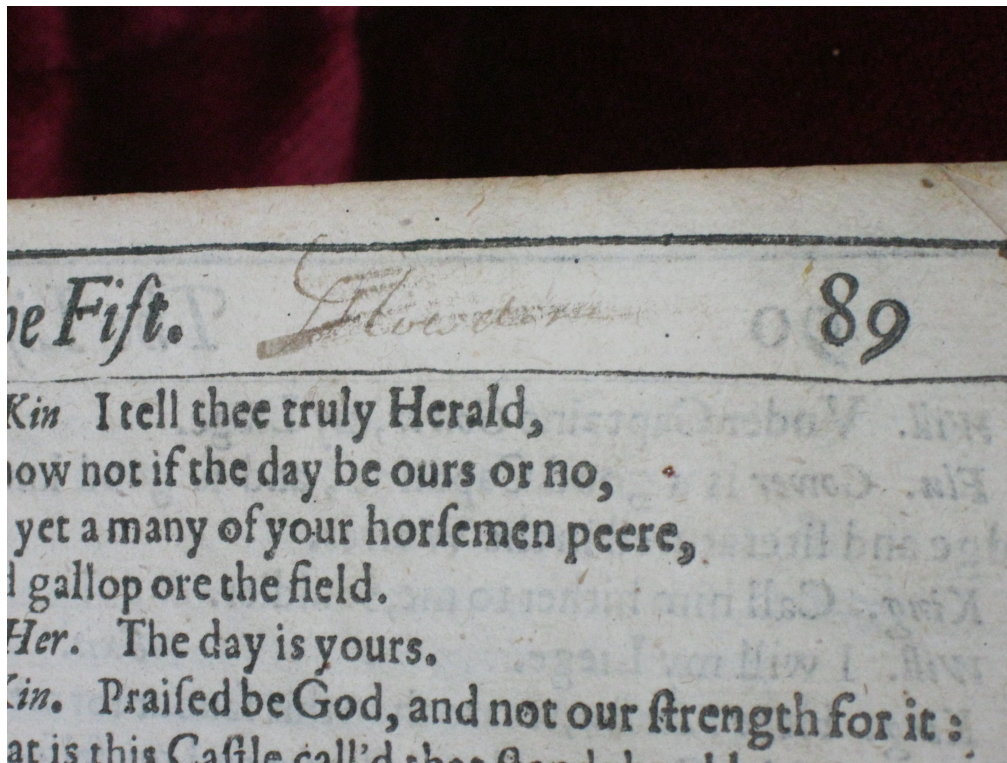 he Fiſt. 89
Kin I tell thee truly Herald,
now not if the day be ours or no,
yet a many of your horſemen peere,
d gallop ore the field.
Her. The day is yours.
Kin. Praiſed be God, and not our ſtrength for it:
at is this Caſtle call'd